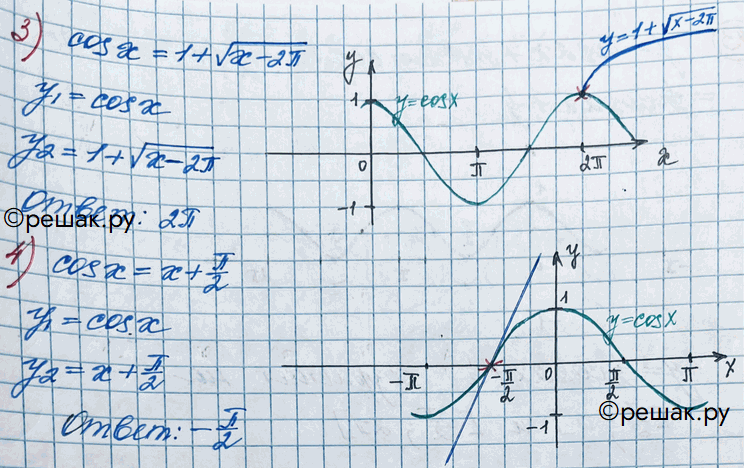 3) cos x = 1 + √x-2π
y₁ = cos x
y₂ = 1 + √x-2π
Ответ: 2π
©решак.ру
y = 1 + √x-2π
y
1
y = cos x
0
π
2π
x
-1
4) cos x = x + π/2
y₁ = cos x
y₂ = x + π/2
Ответ: -π/2
y
1
y = cos x
-π
-π/2
0
π/2
π
x
-1
©решак.ру